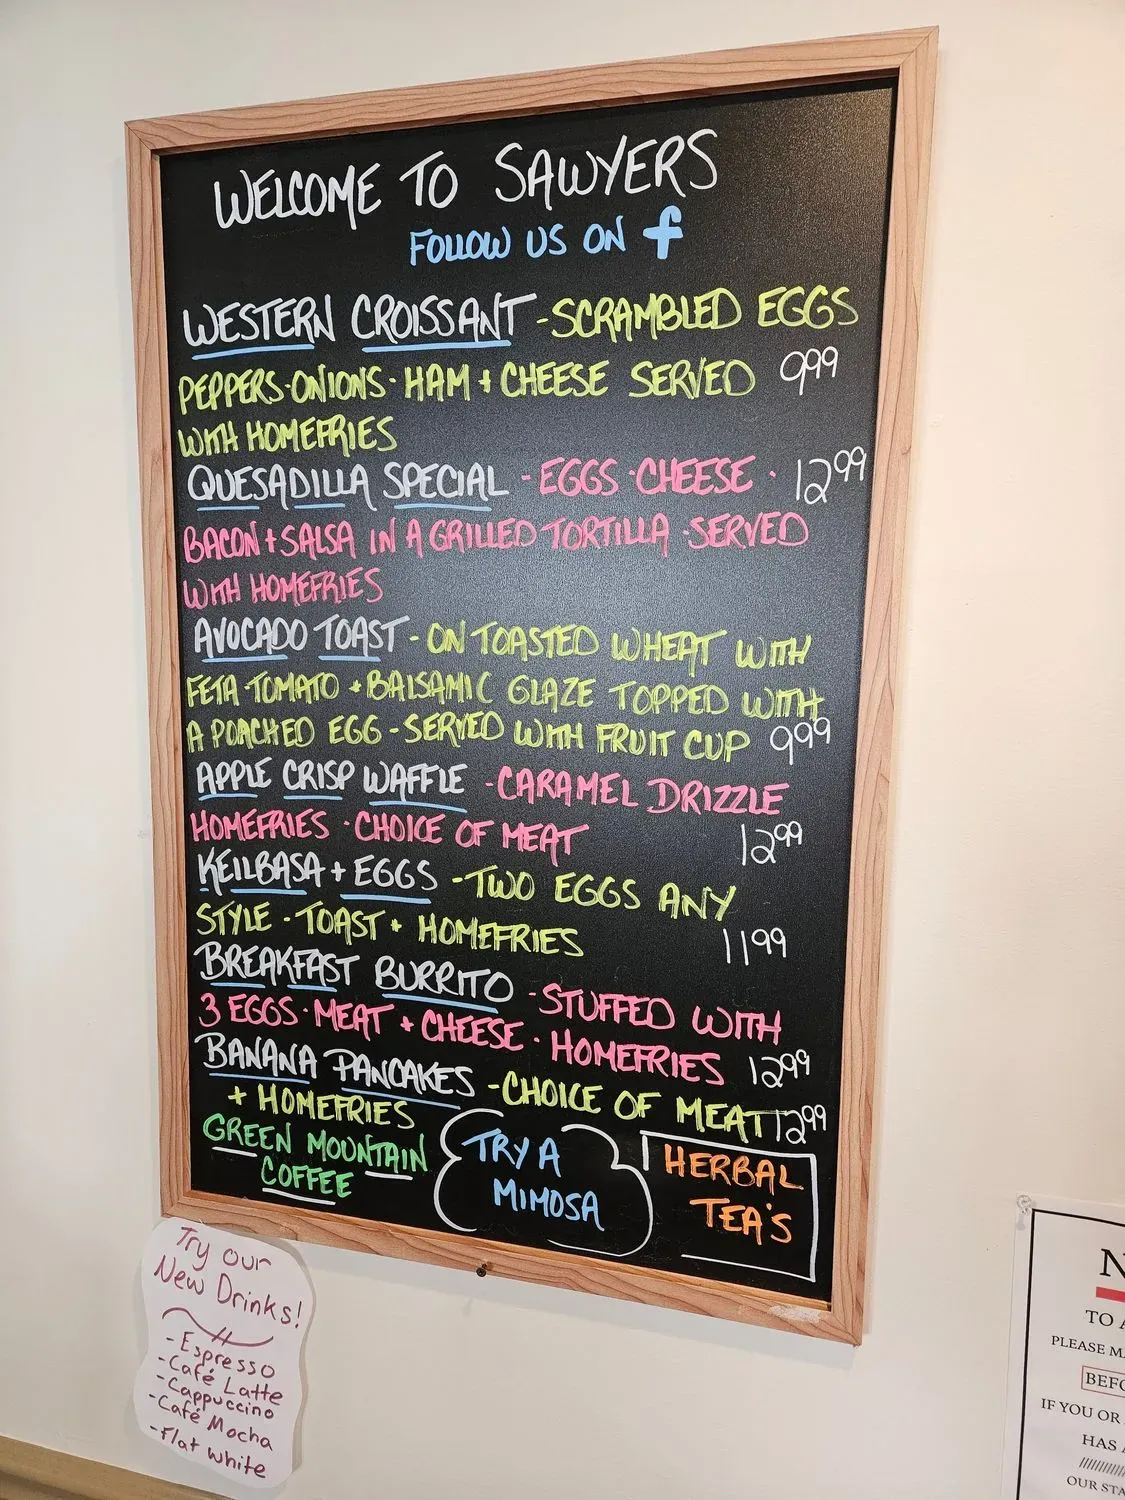 WELCOME TO SAWYERS
FOLLOW US ON f
WESTERN CROISSANT - SCRAMBLED EGGS
PEPPERS · ONIONS · HAM + CHEESE SERVED 9.99
WITH HOMEFRIES
QUESADILLA SPECIAL - EGGS · CHEESE · 12.99
BACON + SALSA IN A GRILLED TORTILLA · SERVED
WITH HOMEFRIES
AVOCADO TOAST - ON TOASTED WHEAT WITH
FETA · TOMATO + BALSAMIC GLAZE TOPPED WITH
A POACHED EGG - SERVED WITH FRUIT CUP 999
APPLE CRISP WAFFLE - CARAMEL DRIZZLE
HOMEFRIES · CHOICE OF MEAT 1299
KEILBASA + EGGS - TWO EGGS ANY
STYLE · TOAST + HOMEFRIES 1199
BREAKFAST BURRITO - STUFFED WITH
3 EGGS · MEAT + CHEESE · HOMEFRIES 1299
BANANA PANCAKES - CHOICE OF MEAT 1299
+ HOMEFRIES
GREEN MOUNTAIN
COFFEE
TRY A
MIMOSA
HERBAL
TEA'S
Try our
New Drinks!
- Espresso
- Café Latte
- Cappuccino
- Café Mocha
- Flat white
TO
PLEASE
IF YOU OR
HAS
OUR